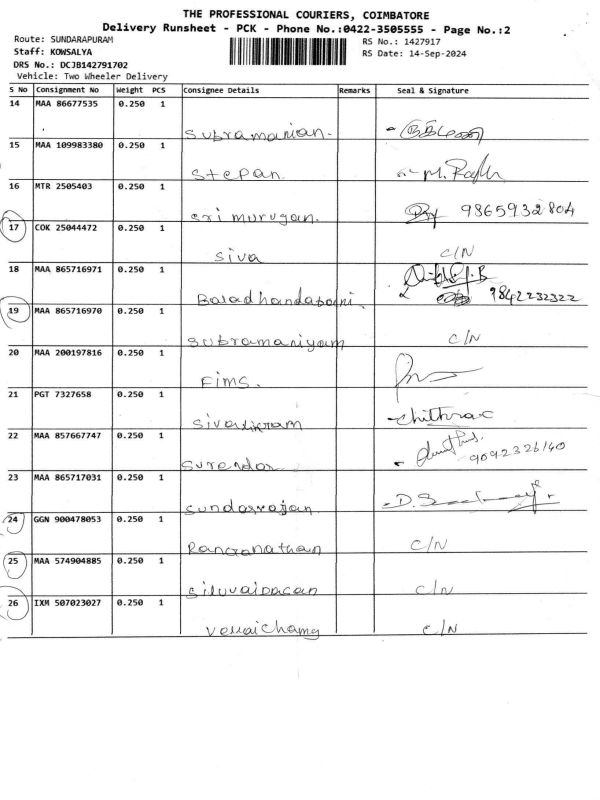 THE PROFESSIONAL COURIERS, COIMBATORE
Delivery Runsheet - PCK - Phone No.:0422-3505555 - Page No.:2
Route: SUNDARAPURAM
RS No.: 1427917
Staff: KOWSALYA
RS Date: 14-Sep-2024
DRS No.: DCJB142791702
Vehicle: Two Wheeler Delivery
S No Consignment No Weight PCS Consignee Details Remarks Seal & Signature
14 MAA 86677535 0.250 1
Subramanian.
15 MAA 109983380 0.250 1
Stepan.
16 MTR 2505403 0.250 1
Sri murugan. 9865932804
17 COK 25044472 0.250 1
Siva C/N
18 MAA 865716971 0.250 1
9842232322
19 MAA 865716970 0.250 1
Subramaniyam C/N
20 MAA 200197816 0.250 1
Fims.
21 PGT 7327658 0.250 1
Chithra
22 MAA 857667747 0.250 1
Surendar 9092326140
23 MAA 865717031 0.250 1
Sundarrajan
24 GGN 900478053 0.250 1
Ranganathan C/N
25 MAA 574904885 0.250 1
C/N
26 IXM 507023027 0.250 1
Vellaichamy C/N